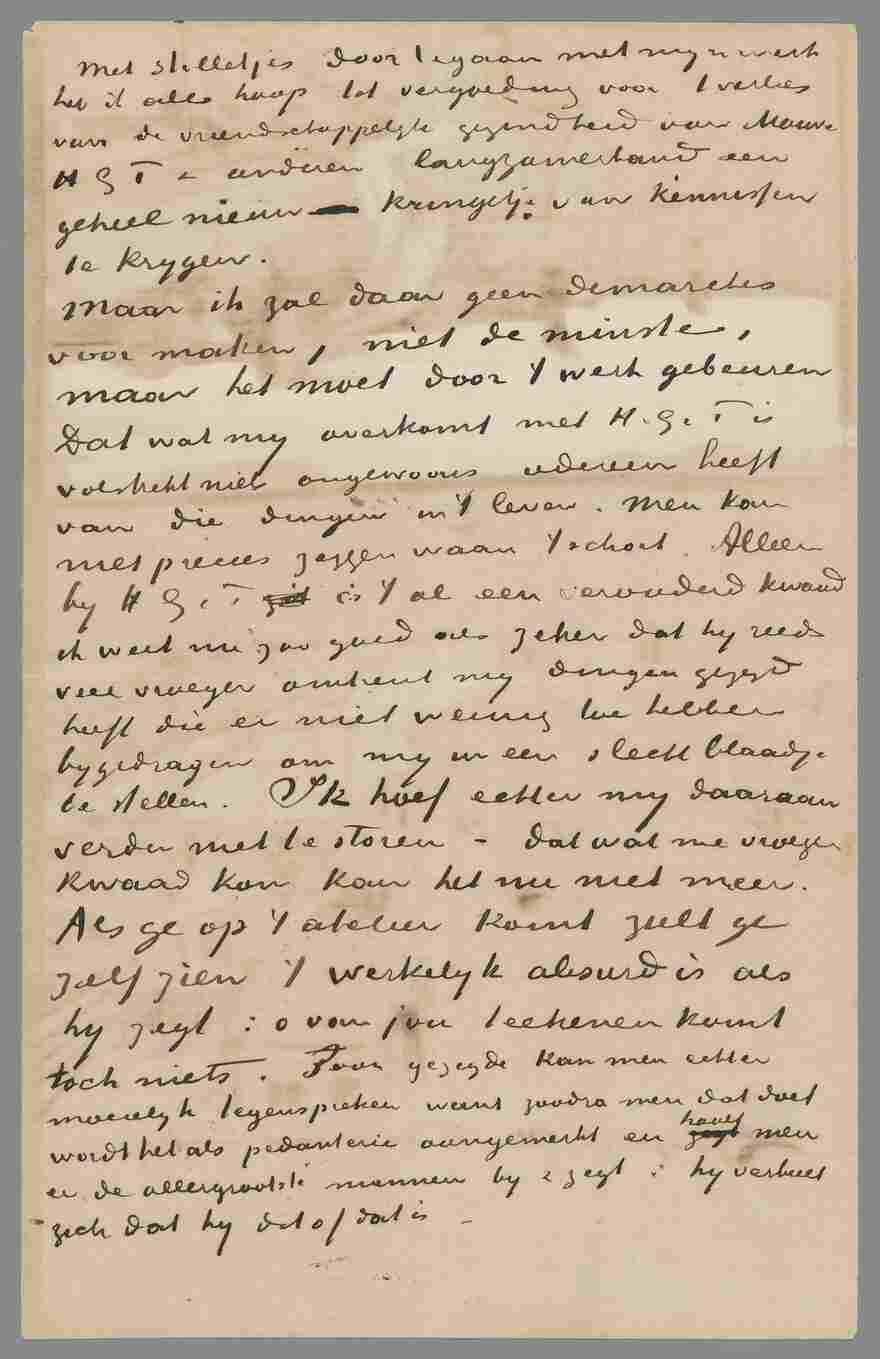 Met stilletjes door te gaan met myn werk
heb ik alles hoop tot vergoeding voor 't verlies
van de vriendschappelyke gezindheid van Mauve
H G T & anderen langzamerhand een
geheel nieuw kringetje van kennissen
te krygen.
Maar ik zal daar geen demarches
voor maken, niet de minste,
maar het moet door 't werk gebeuren
Dat wat my overkomt met H. G. T is
volstrekt niet ongewoons iedereen heeft
van die dingen in 't leven. Men kan
niet precies zeggen waar 't schort. Alleen
by H G. T zit is 't al een verouderd kwaad
ik weet nu zoo goed als zeker dat hy reeds
veel vroeger omtrent my dingen gezegd
heeft die er niet weinig toe hebben
bygedragen om my in een slecht blaadje
te stellen. Ik hoef echter my daaraan
verder niet te storen – dat wat me vroeger
kwaad kon kan het nu niet meer.
Als ge op 't atelier komt zult ge
zelf zien 't werkelyk absurd is als
hy zegt : o van jou teekenen komt
toch niets. Zoo'n gezegde kan men echter
moeielyk tegenspreken want zoodra men dat doet
wordt het als pedanterie aangemerkt en zegt haalt men
er de allergrootste mannen by & zegt : hy verbeeldt
zich dat hy dit of dat is –